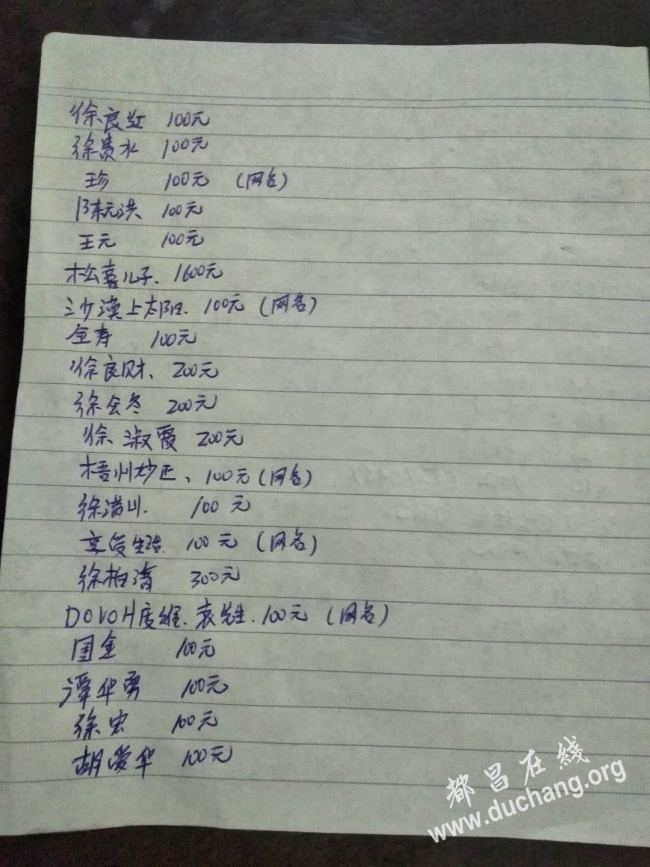 徐良红 100元
徐贵水 100元
珍 100元 (网名)
陈元洪 100元
王元 100元
松喜儿子、1600元
沙漠上太阳、100元 (网名)
金寿 100元
徐良财、200元
徐会冬 200元
徐淑霞 200元
梧州炒正、100元 (网名)
徐满山 100元
享受生活 100元 (网名)
徐柏清 300元
DOVOH度维、袁先生、100元 (网名)
国金 100元
谭华勇 100元
徐宏 100元
胡爱华 100元
都昌在线
www.duchang.org